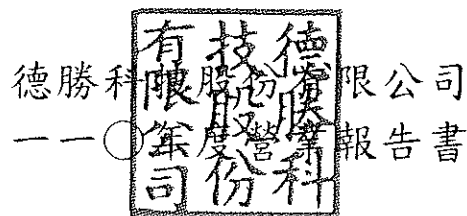 德勝科技股份有限公司
一一〇年度營業報告書
德勝科
技股份
有限公司